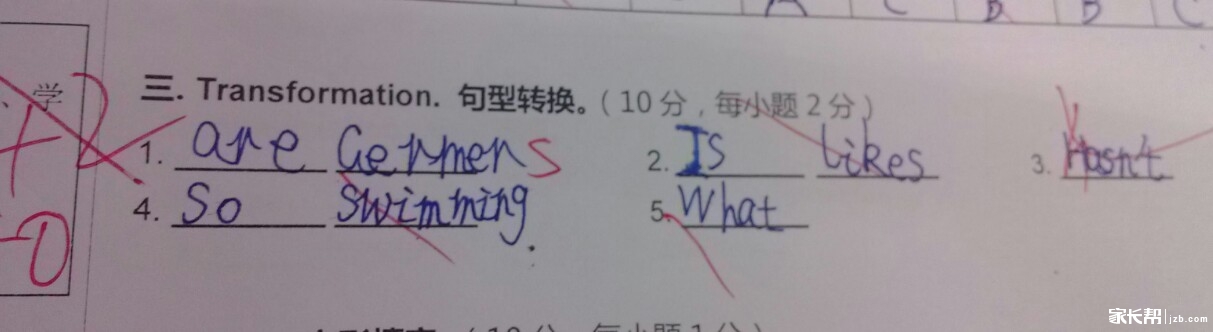 A C B B C
学
三. Transformation. 句型转换。(10分，每小题2分)
1. are Germens 2. Is Likes 3. Hasn't
4. So Swimming. 5. What
-0
(10分，每小题1分)
家长帮 jzb.com